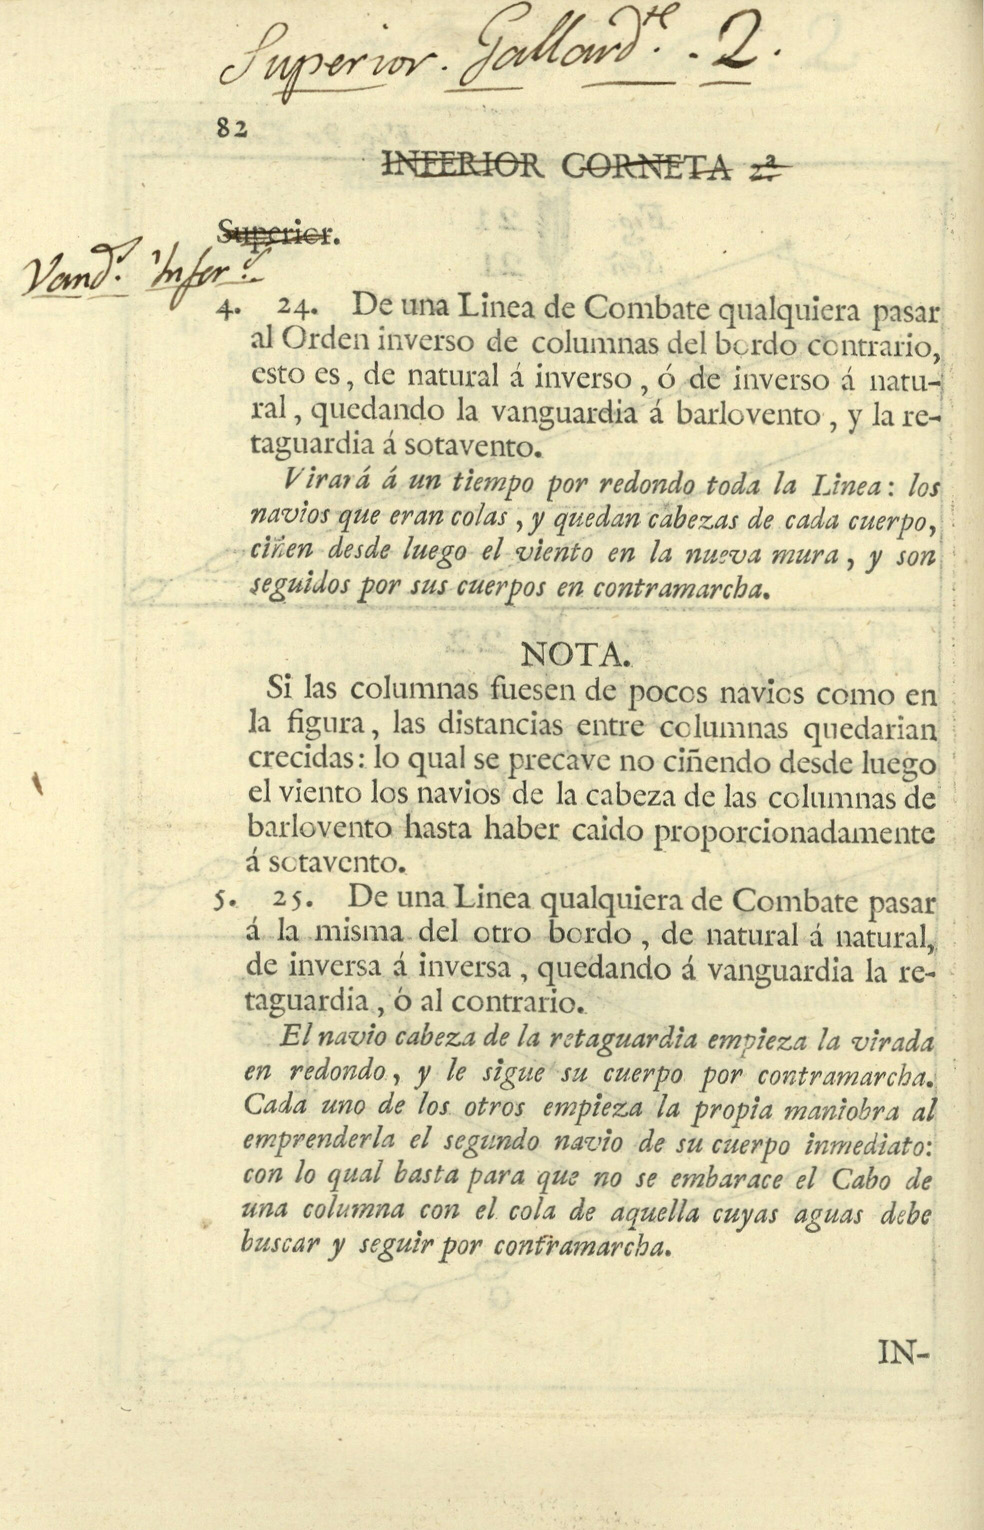 Superior. Gallardte. . 2.
82
INFERIOR CORNETA 2ª
Superior.
Vandª. Inferr.
4. 24. De una Linea de Combate qualquiera pasar
al Orden inverso de columnas del bordo contrario,
esto es, de natural á inverso, ó de inverso á natu-
ral, quedando la vanguardia á barlovento, y la re-
taguardia á sotavento.
Virará á un tiempo por redondo toda la Linea: los
navios que eran colas, y quedan cabezas de cada cuerpo,
ciñen desde luego el viento en la nueva mura, y son
seguidos por sus cuerpos en contramarcha.
NOTA.
Si las columnas fuesen de pocos navios como en
la figura, las distancias entre columnas quedarian
crecidas: lo qual se precave no ciñendo desde luego
el viento los navios de la cabeza de las columnas de
barlovento hasta haber caido proporcionadamente
á sotavento.
5. 25. De una Linea qualquiera de Combate pasar
á la misma del otro bordo, de natural á natural,
de inversa á inversa, quedando á vanguardia la re-
taguardia, ó al contrario.
El navio cabeza de la retaguardia empieza la virada
en redondo, y le sigue su cuerpo por contramarcha.
Cada uno de los otros empieza la propia maniobra al
emprenderla el segundo navio de su cuerpo inmediato:
con lo qual basta para que no se embarace el Cabo de
una columna con el cola de aquella cuyas aguas debe
buscar y seguir por contramarcha.
IN-